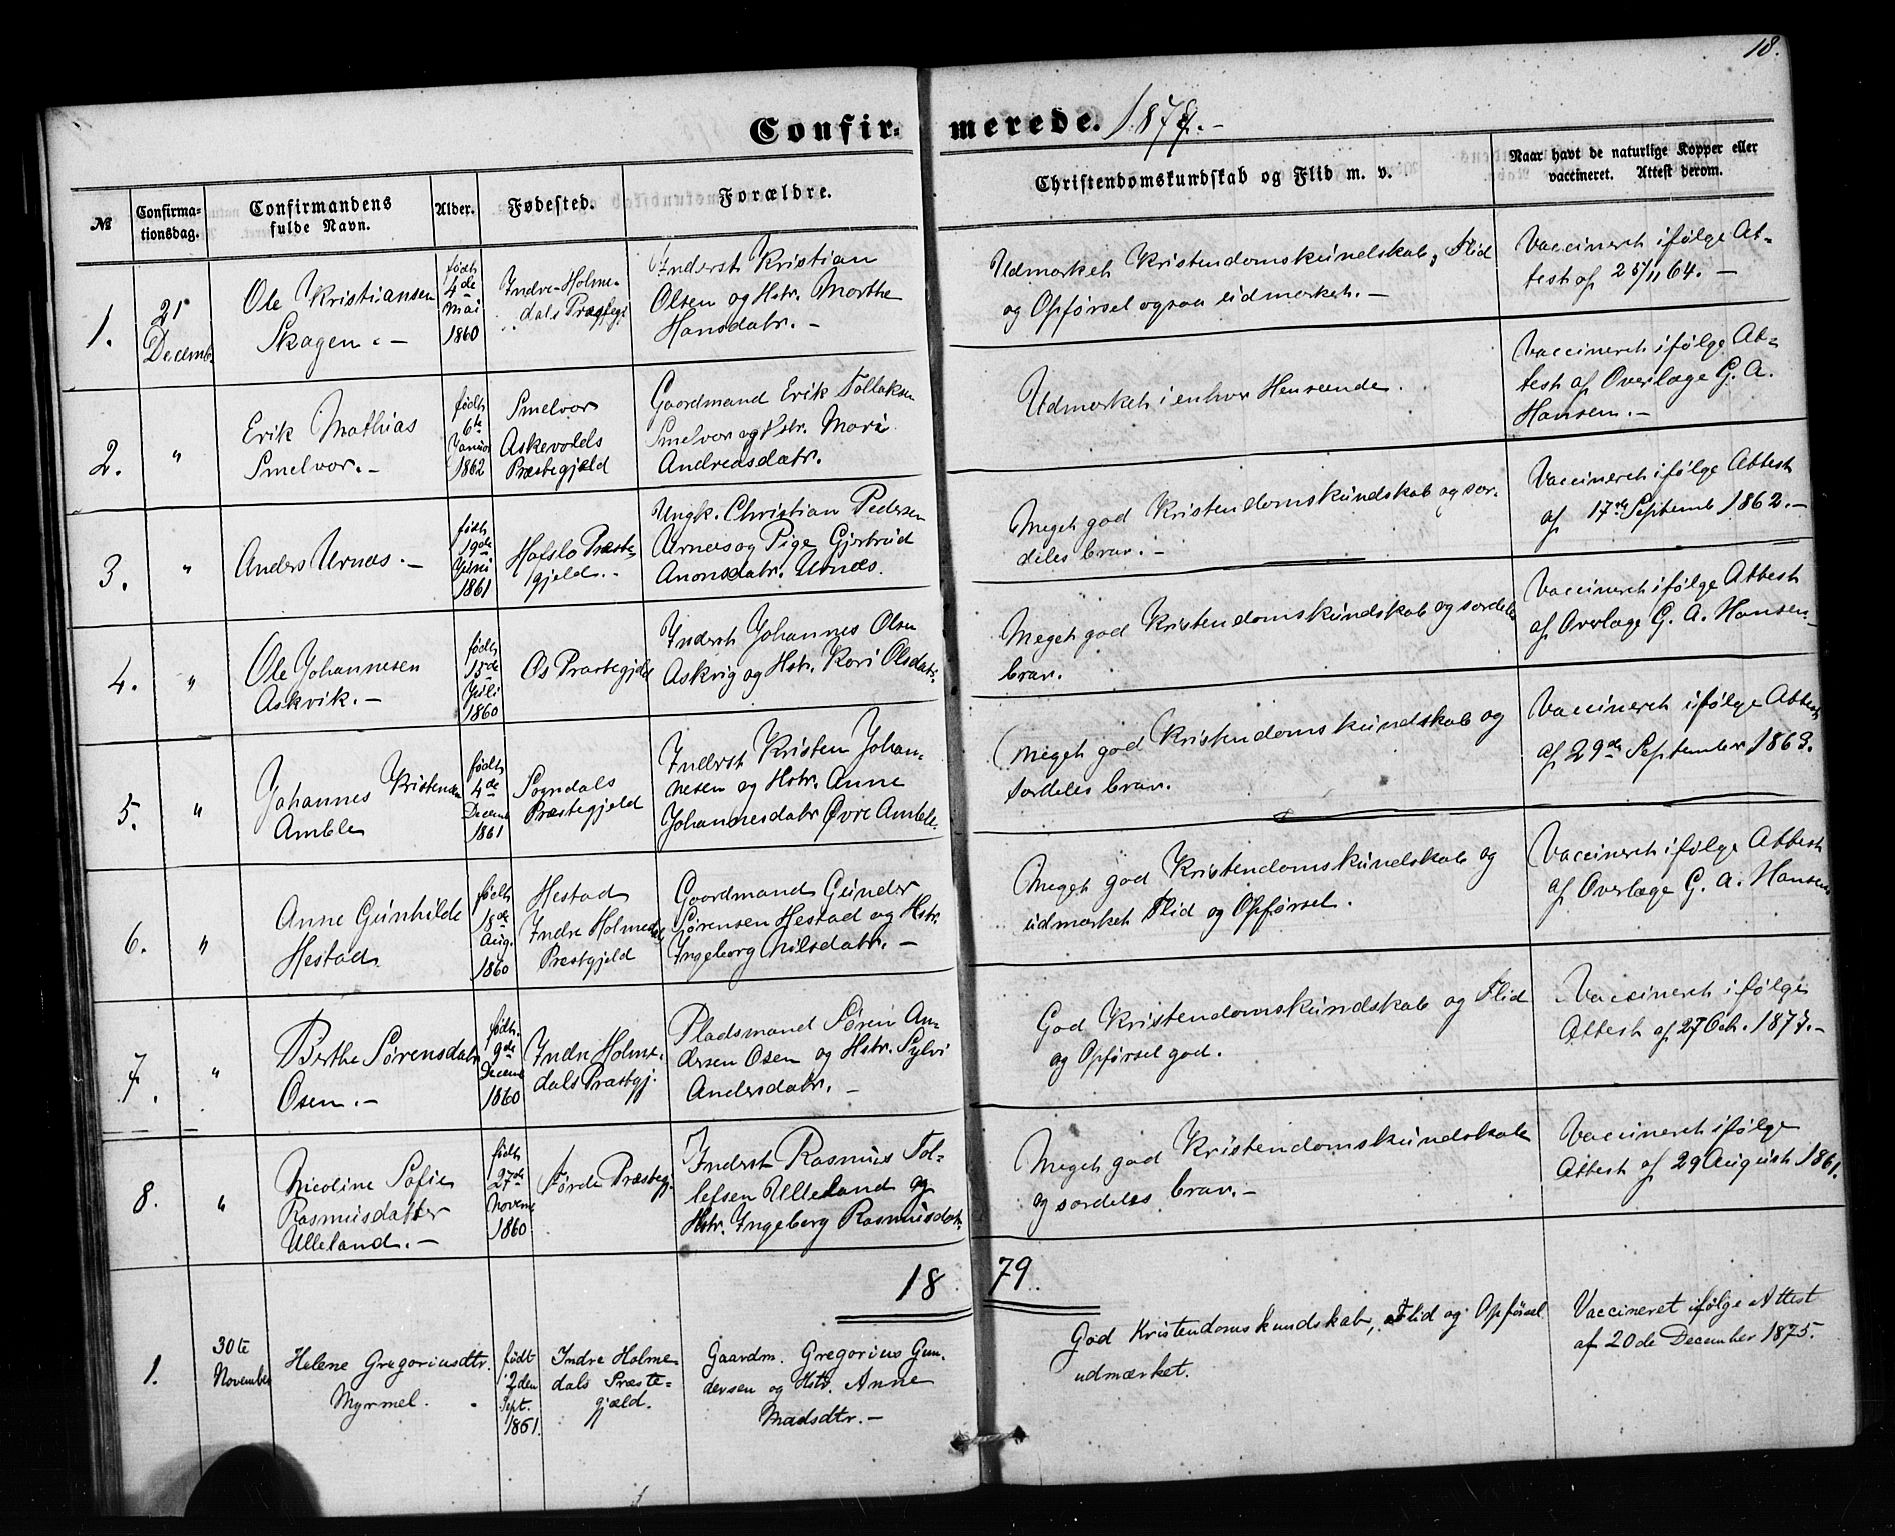 18.
Confirmerede. 1879.-
№
Confirmationsdag.
Confirmandens fulde Navn.
Alder.
Fødested.
Forældre.
Christendomskundskab og Flid m. v.
Naar havt de naturlige Kopper eller vaccineret. Attest derom.
1.
21 Decemb.
Ole Kristiansen
Skagen. -
født
4de
Mai
1860
Indre-Holme-
dals Præstegj.
Inderst Kristian
Olsen og Hstr. Marthe
Hansdatr. -
Udmærket Kristendomskundskab, Flid
og Opførsel ogsaa udmærket. -
Vaccineret ifølge At-
test af 25/11 64. -
2.
"
Erik Mathias
Smelvær. -
født
6te
Januar
1862
Smelvær
Askevolds
Præstegjeld
Gaardmand Erik Tollaksen
Smelvær og Hstr. Mari
Andreasdatr.
Udmærket i enhver Henseende.
Vaccineret ifølge At-
test af Overlæge G. A.
Hansen. -
3.
"
Anders Urnæs. -
født
19de
Juni
1861
Hafslo Præste-
gjeld. -
Ungk. Christian Pedersen
Urnæs og Pige Gjertrud
Anonsdatr. Urnæs.
Meget god Kristendomskundskab og sær-
deles brav. -
Vaccineret ifølge Attest
af 17de Septemb 1862. -
4.
"
Ole Johannesen
Askvik. -
født
15de
Juli
1860
Os Præstegjeld
Inderst Johannes Olsen
Askvig og Hstr. Kari Olsdatr.
Meget god Kristendomskundskab og særdeles
brav.
Vaccineret ifølge Attest
af Overlæge G. A. Hansen. -
5.
"
Johannes Kristensen
Amble
født
4de
Decemb
1861
Sogndals
Præstegjeld
Inderst Kristen Johan-
nesen og Hstr. Anne
Johannesdatr Øvre Amble.
Meget god Kristendomskundskab og
særdeles brav.
Vaccineret ifølge Attest
af 29de September 1863.
6.
"
Anne Gunhilde
Hestad
født
18de
Aug.
1860
Hestad
Indre Holmedal
Præstgjeld
Gaardmand Gunder
Sørensen Hestad og Hstr.
Ingeborg Nilsdatr. -
Meget god Kristendomskundskab og
udmærket Flid og Opførsel.
Vaccineret ifølge Attest
af Overlæge G. A. Hansen
7.
"
Berthe Sørensdatr
Osen. -
født.
9de
Decemb
1860
Indre Holme-
dals Præstgj.
Pladsmand Søren An-
dersen Osen og Hstr. Sylvi
Andersdatr. -
God Kristendomskundskab og Flid
og Opførsel god.
Vaccineret ifølge
Attest af 27 Oct. 1877. -
8.
"
Nicoline Sofie
Rasmusdatter
Ulleland. -
født
27de
Novemb
1860
Førde Præstegj.
Inderst Rasmus Tol-
lefsen Ulleland og
Hstr. Ingeborg Rasmusdatr.
Meget god Kristendomskundskab
og særdeles brav. -
Vaccineret ifølge
Attest af 29 August 1861.
18 79.
1.
30te
November
Helene Gregoriusdtr.
Myrmel.
født
2den
Sept.
1861.
Indre Holme-
dals Præste-
gjæld.
Gaardm. Gregorius Gun-
dersen og Hstr. Anne
Madsdtr. -
God Kristendomskundskab, Flid og Opførsel
udmærket.
Vaccineret ifølge Attest
af 20de December 1875.